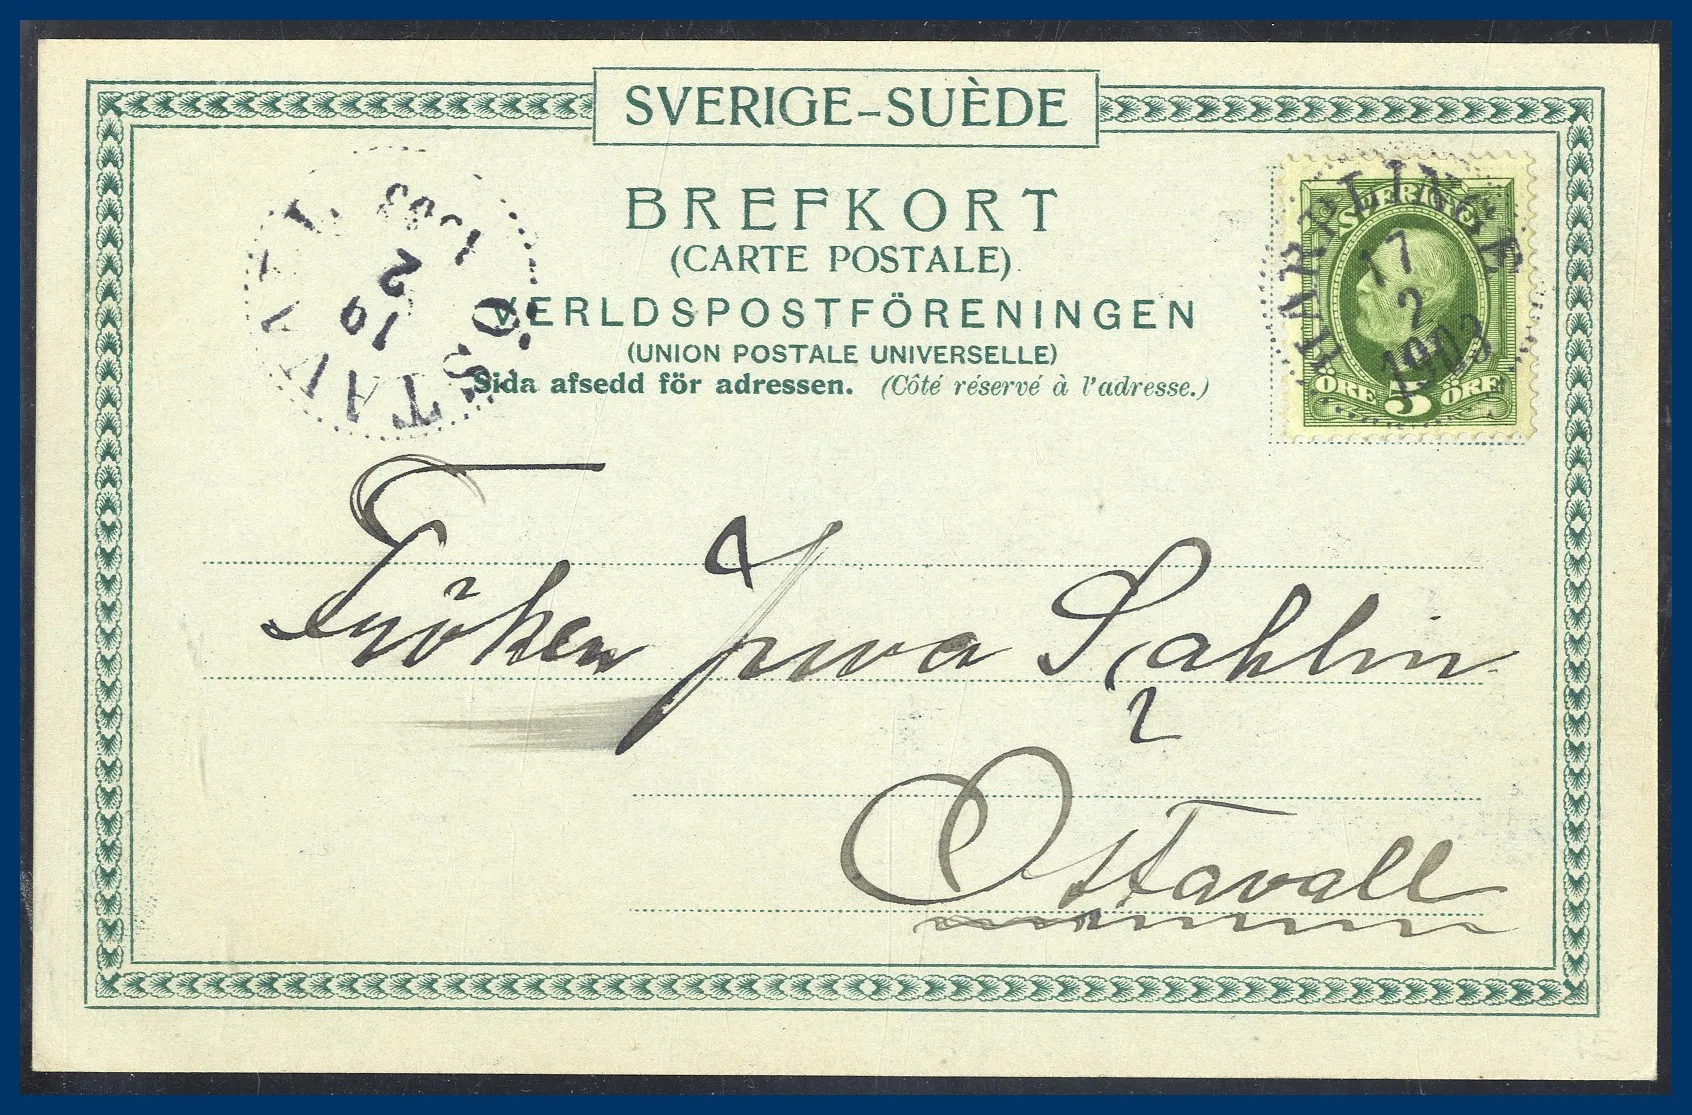 SVERIGE-SUÈDE
BREFKORT
(CARTE POSTALE)
VERLDSPOSTFÖRENINGEN
(UNION POSTALE UNIVERSELLE)
Sida afsedd för adressen. (Côté réservé à l'adresse.)
ÖSTAVALL
19
2
1903
SVERIGE
HARPLINGE
17
2
1903
ÖRE 5 ÖRE
Fröken Sahlin
Östavall